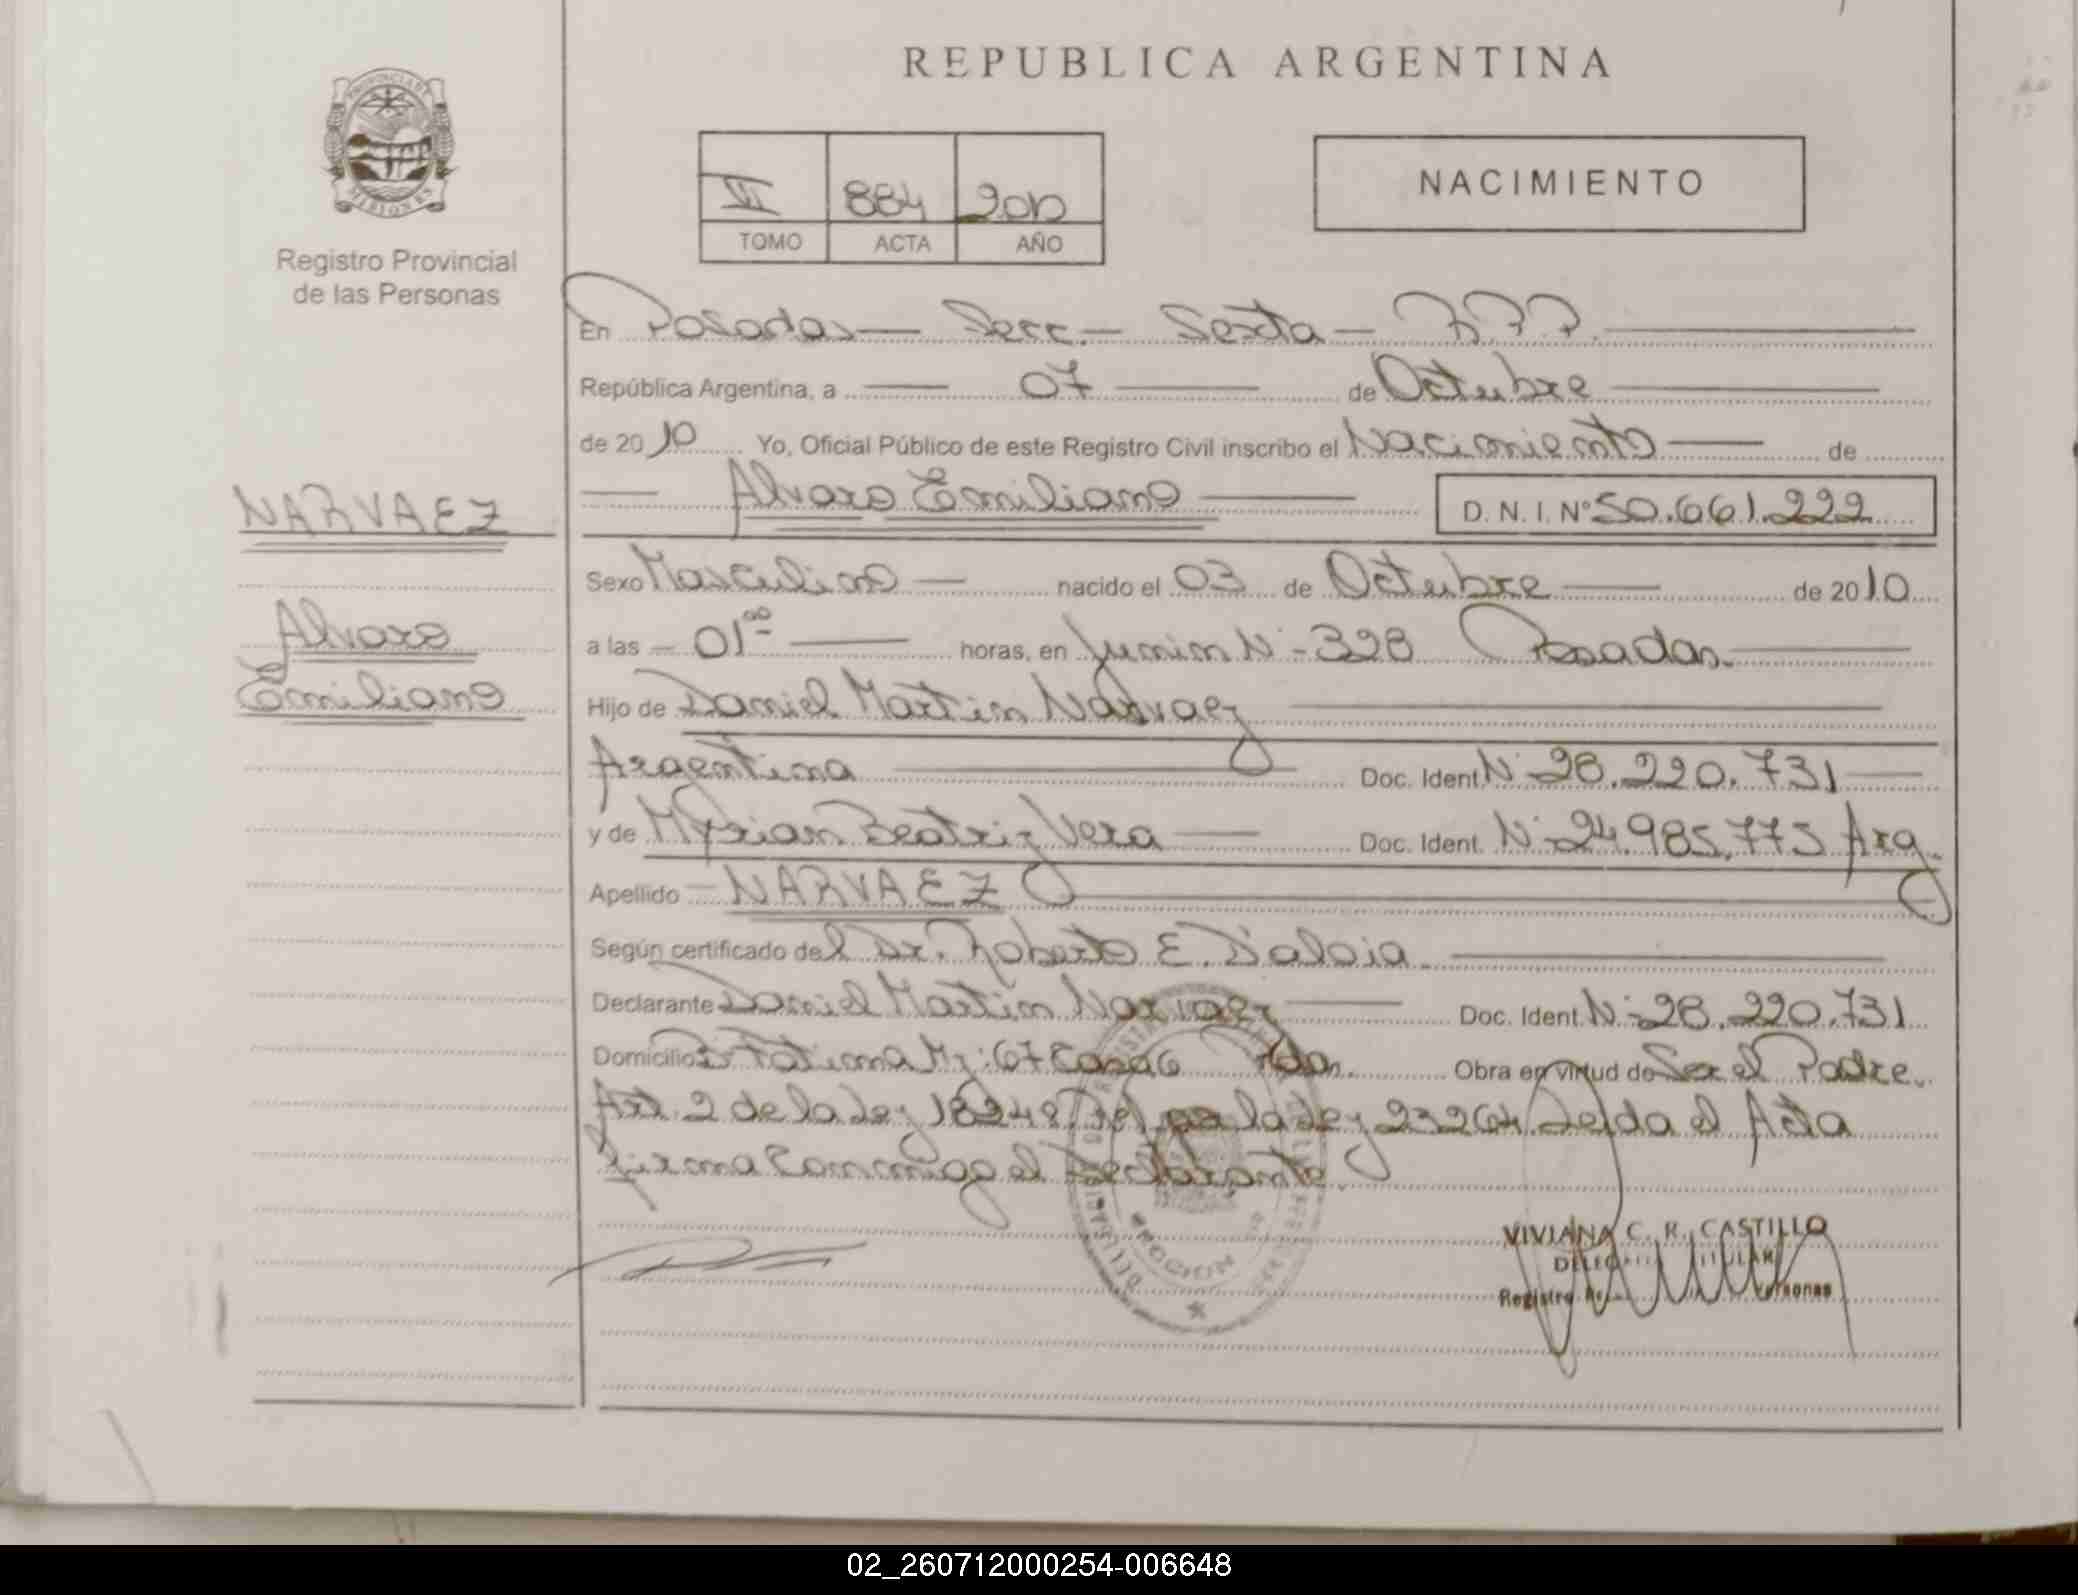 REPUBLICA ARGENTINA
PROVINCIA DE
MISIONES
Registro Provincial
de las Personas
VI 884 2010
TOMO ACTA AÑO
NACIMIENTO
En Posadas — Secc. — Sexta — R.P.P.
República Argentina, a 07 de Octubre
de 2010 Yo, Oficial Público de este Registro Civil inscribo el Nacimiento de
Alvaro Emiliano D.N.I. Nº 50.661.222
NARVAEZ
Alvaro
Emiliano
Sexo Masculino nacido el 03 de Octubre de 2010
a las 01:00 horas, en Junin Nº 328 Posadas.
Hijo de Daniel Martin Narvaez
Argentina Doc. Ident. Nº 28.220.731
y de Myrian Beatriz Vera Doc. Ident. Nº 24.985.775 Arg.
Apellido NARVAEZ
Según certificado del Dr. Roberto E. D'aloia.
Declarante Daniel Martin Narvaez Doc. Ident. Nº 28.220.731
Domicilio Bº Fatima Mz: 67 Casa 6 Pdas. Obra en virtud de Ser el Padre.
Art. 2 de la Ley 18248 por la Ley 23264 Leida el Acta
firma Conmigo el Declarante.
VIVIANA C. R. CASTILLO
TITULAR
Registro Personas
02_260712000254-006648